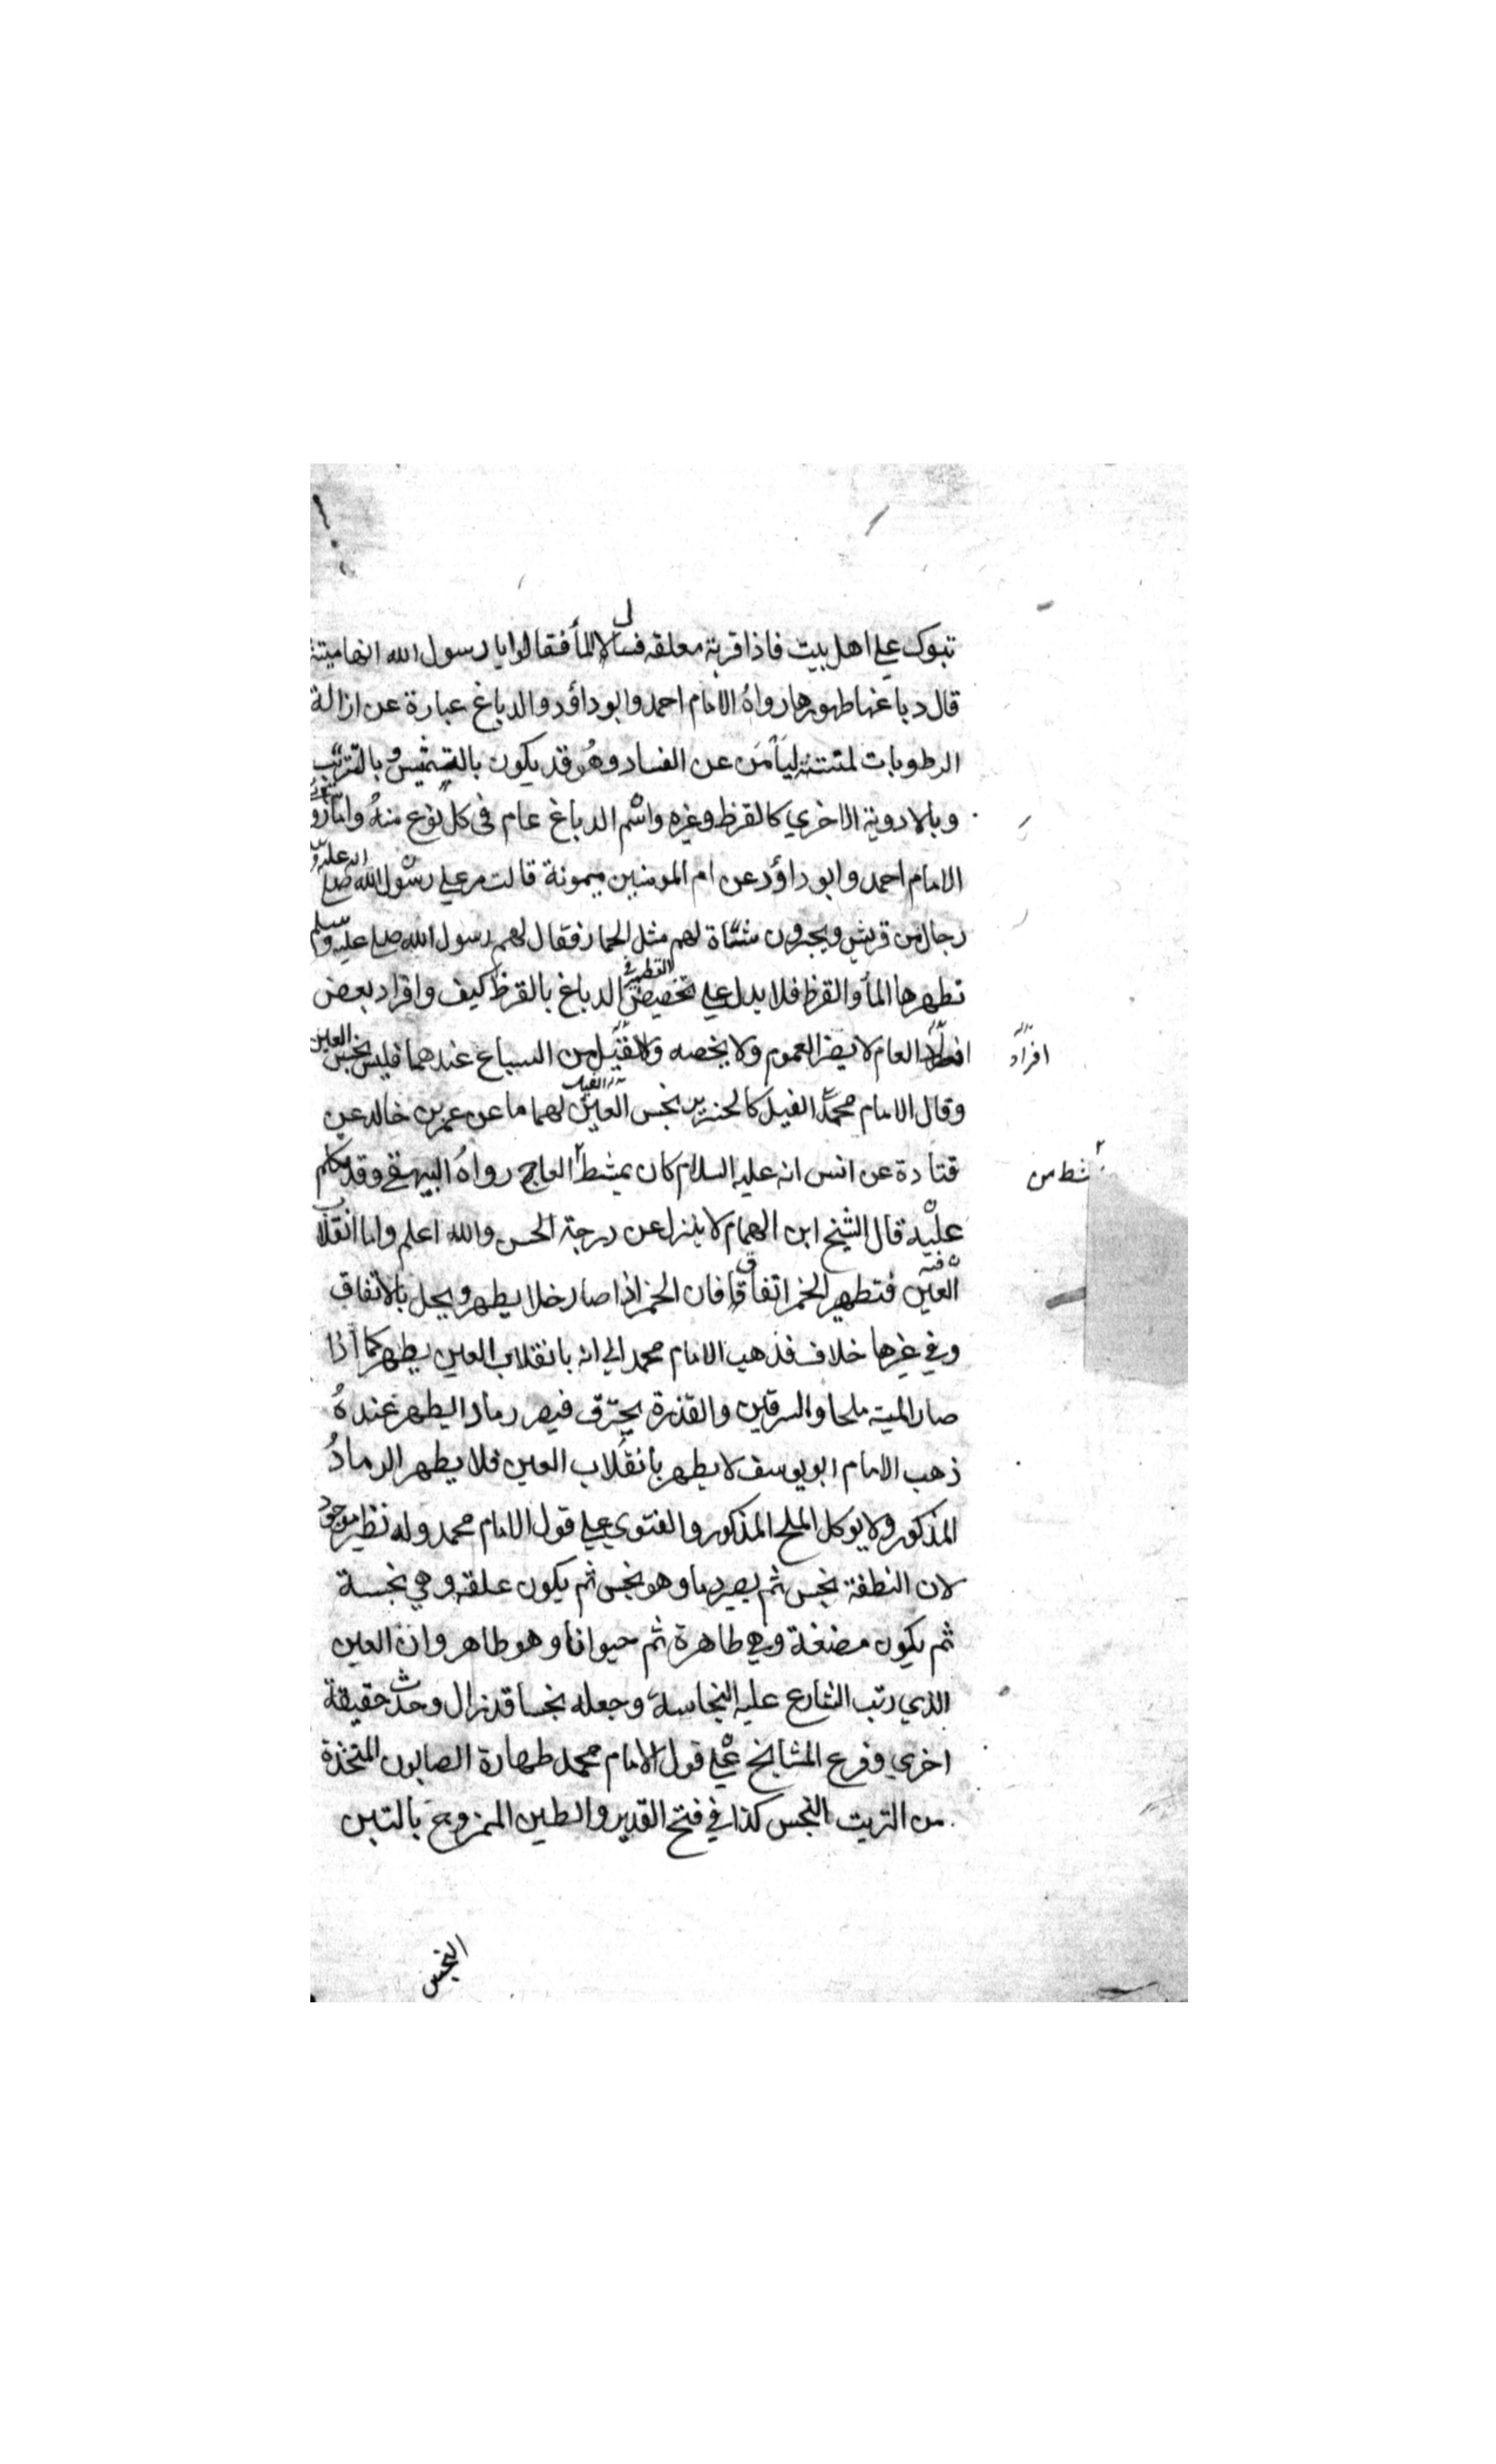 تبوك علي اهل بيت فاذا قربة معلقه فسال الماٴ فقالوا يا رسول الله انها ميتة
قال دباغها طهورها رواهُ الامام احمد وابو داؤد والدباغ عبارة عن ازالة
الرطوبات المنتنة ليأمن عن الفساد وهُو قد يكون بالتشميس وبالتتريب
وبالادوية الاخري كالقرظ وغيره واسم الدباغ عام فى كل نوع منهُ واما رو
الامام احمد وابو داؤد عن ام المومنين ميمونة قالت مر علي رسول الله صلى الله عليه و
رجال من قريش ويجرون شاة لهم مثل الحمار فقال لهم رسول الله صلع عليه وسلم
تطهرها الماٴ والقرظ فلا يدل علي تخصيص التطهير فى الدباغ بالقرظ كيف وافراد بعض
العام لا يضر العموم ولا يخصه والفيل من السباع عندهما فليس نجس العين
افراد
وقال الامام محمد الفيل كالخنزير نجس العين لهما ما عن عمر بن خالد عن
قتادة عن انس انه عليه السلام كان يمشط العاج رواهُ البيهقي وقد تكلم
شط من
عليه قال الشيخ ابن الهمام لا ينزل عن درجة الحسن والله اعلم واما انقلاب
العين فتطهير الخمر اتفاقا فان الخمر اذا صار خلا يطهر ويحل بالاتفاق
وفي غيرها خلاف فذهب الامام محمد الي انه بانقلاب العين يطهر كما اذا
صار الميتة ملحا والسرقين والقذرة يحترق فيصر رمادا يطهر عندهُ
ذهب الامام ابو يوسف لا يطهر بانقلاب العين فلا يطهر الرمادُ
المذكور ولا يوكل الملح المذكور والفتوي علي قول الامام محمد وله نظير موجود
لان النطفة نجس ثم يصير دما وهو نجس ثم يكون علقه وهي نجسة
ثم يكون مضغة وهي طاهرة ثم حيوانا وهو طاهر وان العين
الذي رتب الشارع عليه النجاسة وجعله نجسا قد زال وحدث حقيقة
اخري وفرع المشايخ علي قول الامام محمد طهارة الصابون المتخذة
من الزيت النجس كذا في فتح القدير والطين الممزوج بالتبن
النجس